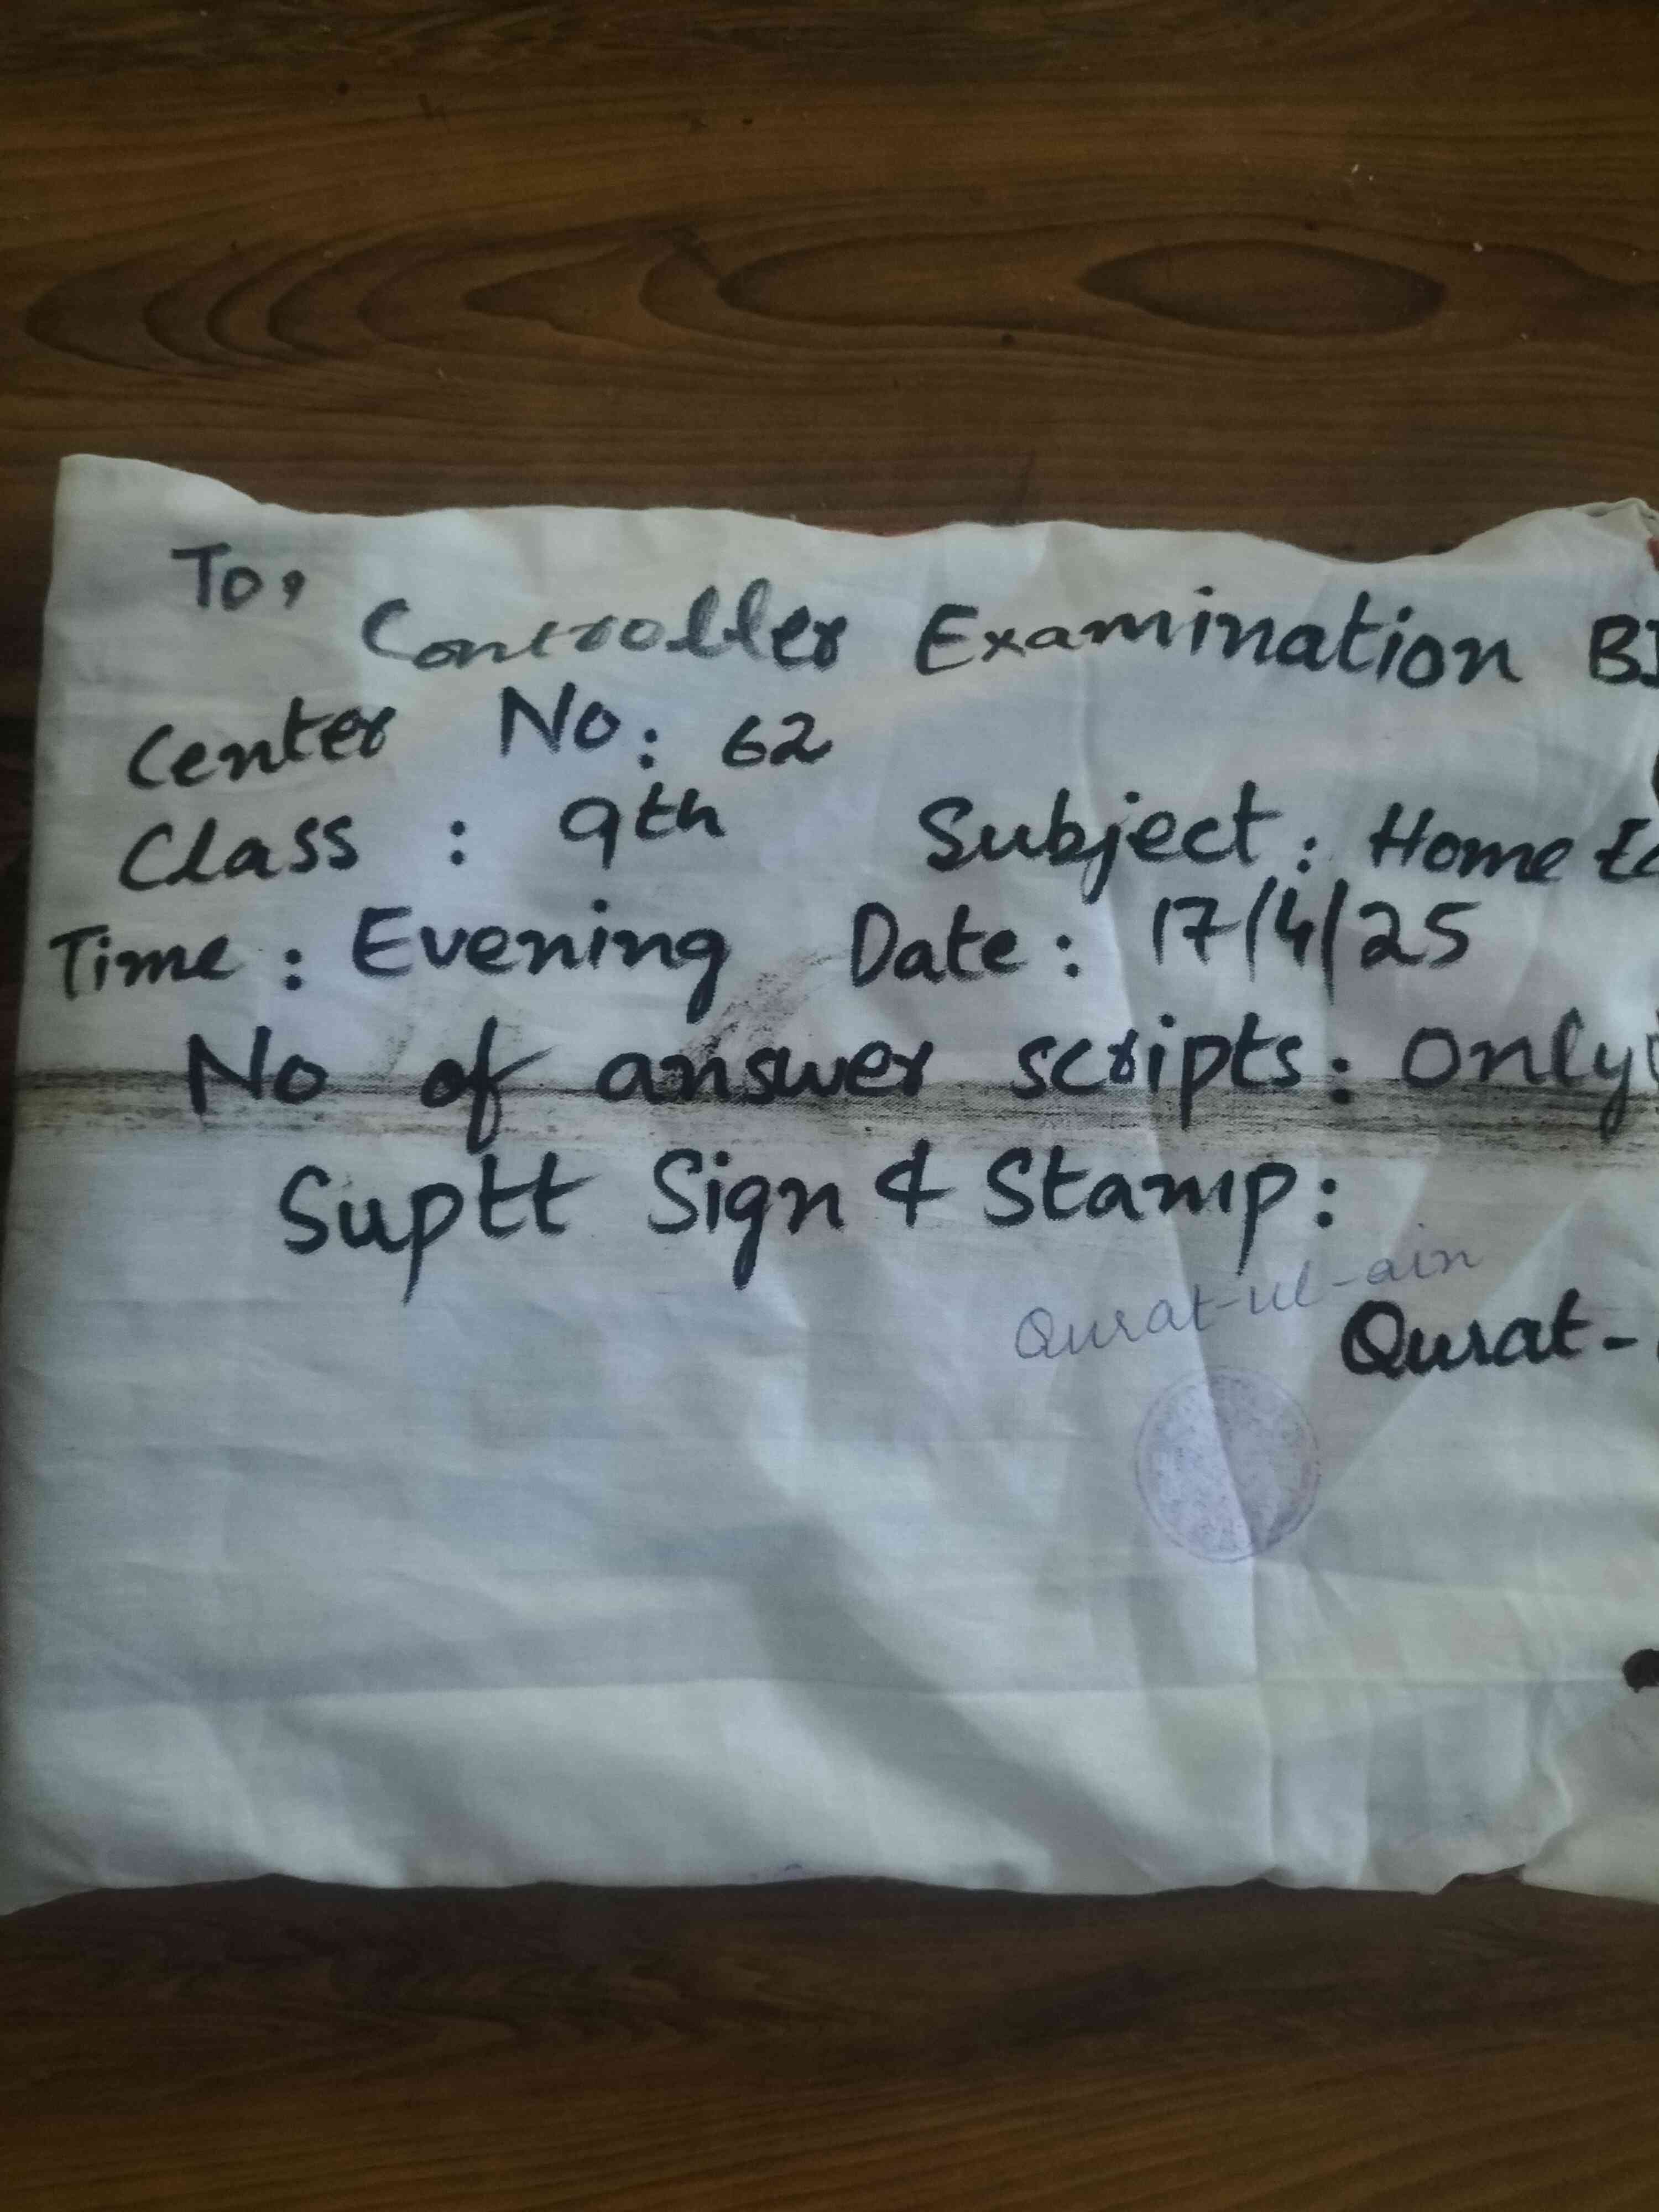 To,
Controller Examination
Center No: 62
Class : 9th Subject : Home
Time : Evening Date : 17/4/25
No of answer scripts : only
Suptt Sign & Stamp :
Qurat-ul-ain
Qurat-